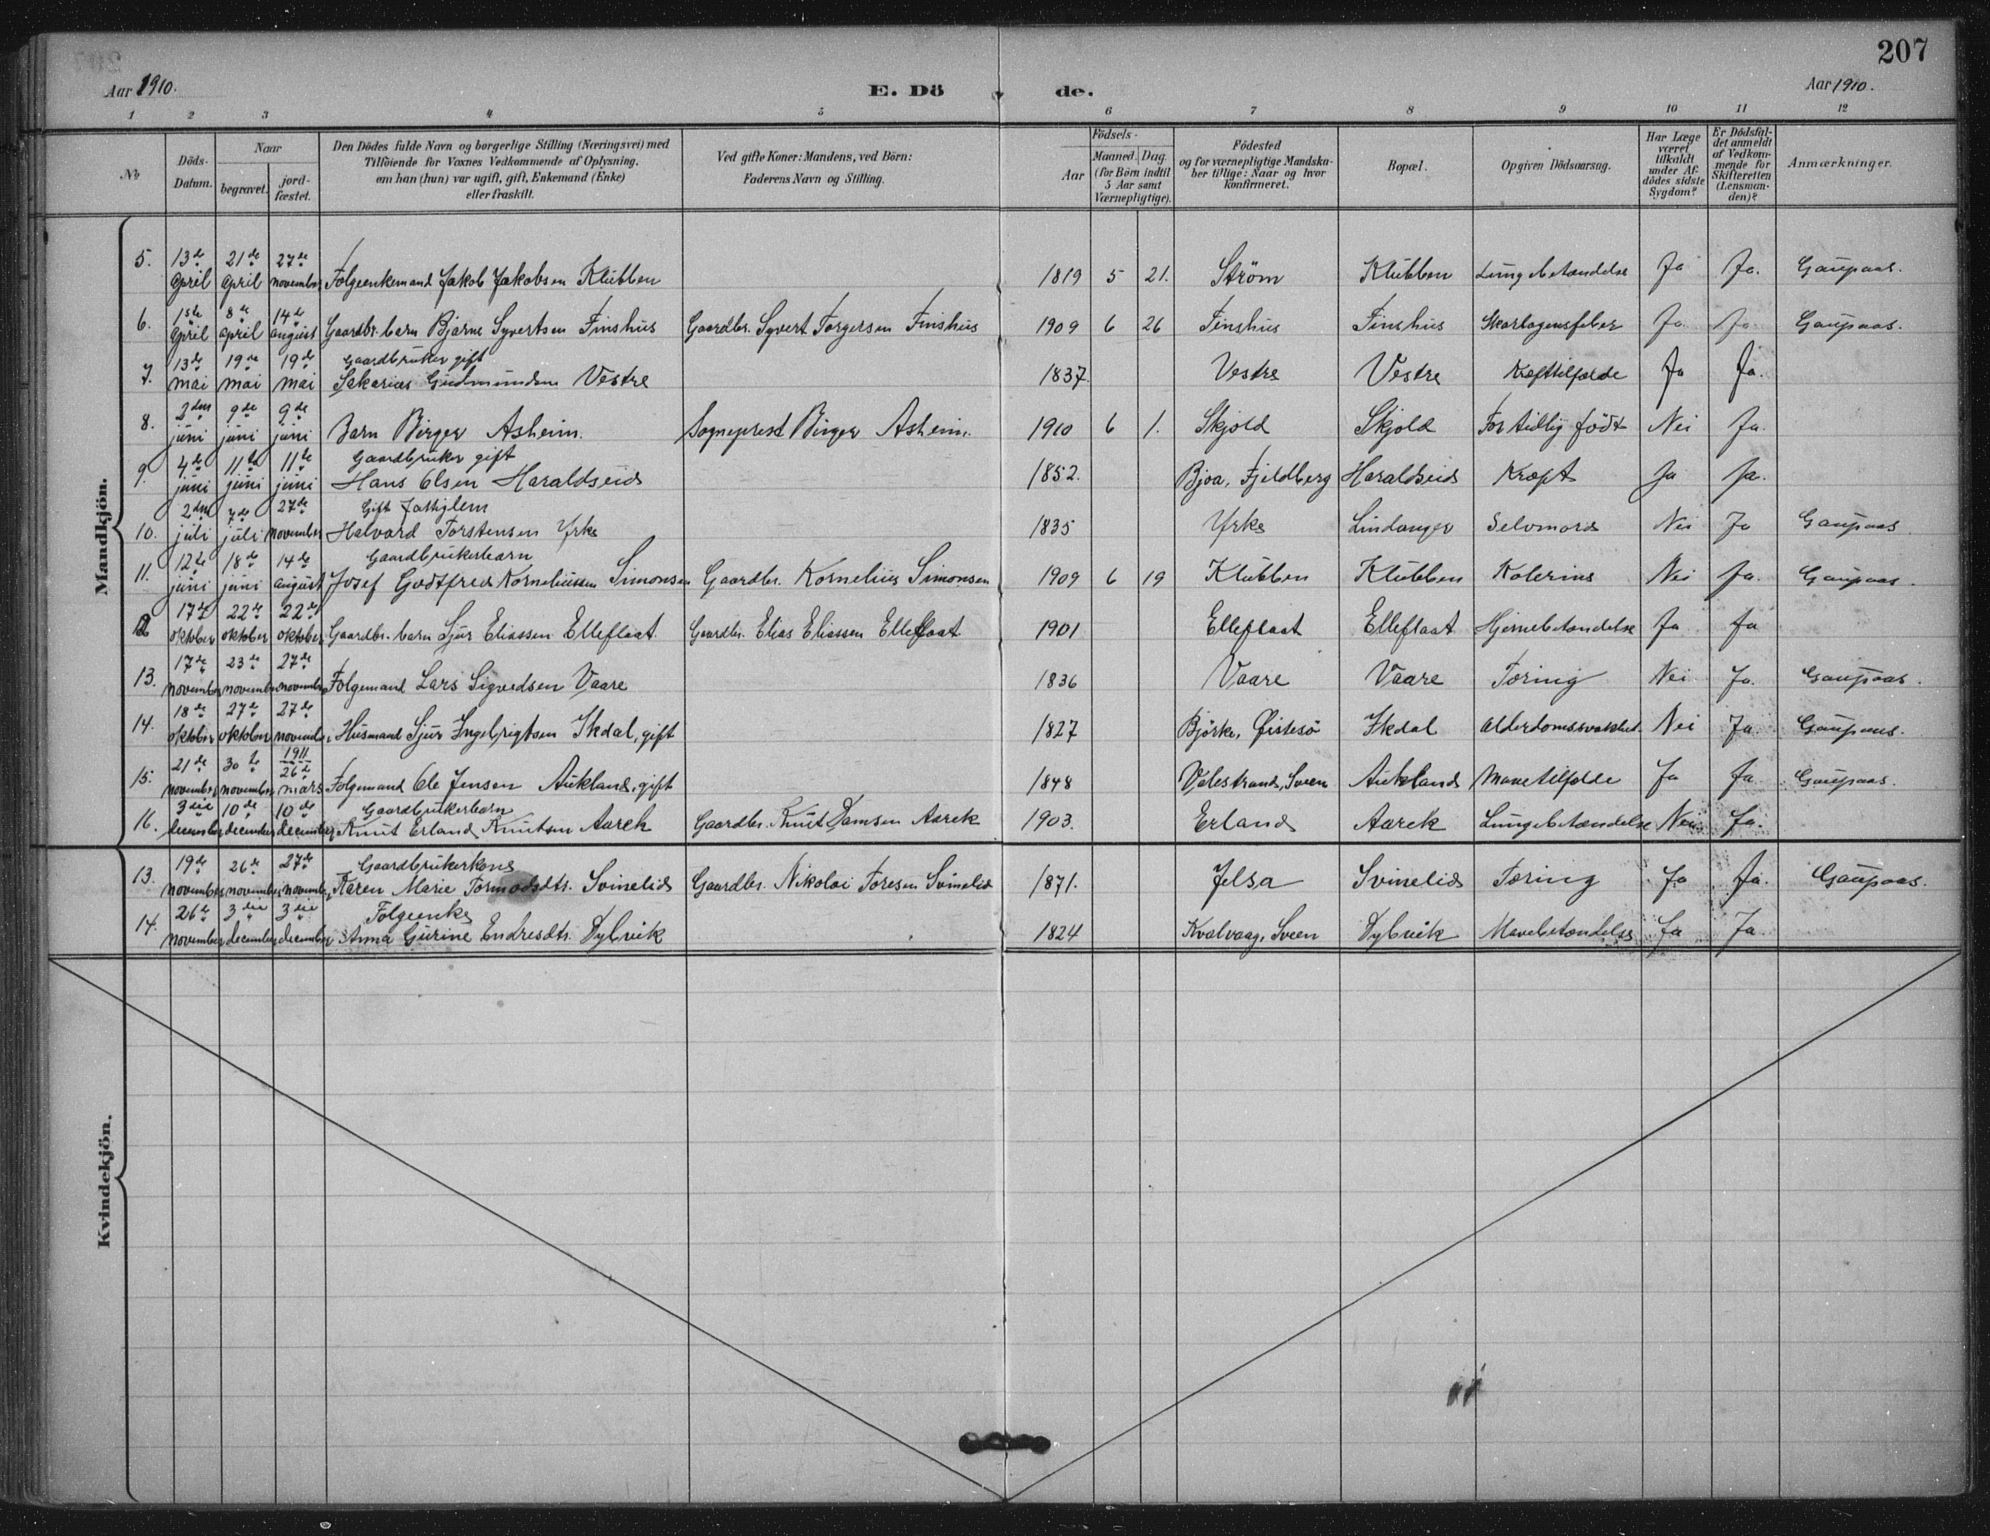 207
Aar 1910. E. Dö de. Aar 1910.
1 2 3 4 5 6 7 8 9 10 11 12
No
Döds-
Datum.
Naar
begravet.
jord-
fæstet.
Den Dödes fulde Navn og borgerlige Stilling (Næringsvei) med
Tilföiende for Voxnes Vedkommende af Oplysning,
om han (hun) var ugift, gift, Enkemand (Enke)
eller fraskilt.
Ved gifte Koner: Mandens, ved Börn:
Faderens Navn og Stilling.
Födsels-
Aar
Maaned. Dag.
(for Börn indtil
5 Aar samt
Værnepligtige).
Födested
og for værnepligtige Mandska-
ber tillige: Naar og hvor
konfirmeret.
Bopæl.
Opgiven Dödsaarsag.
Har Læge
været
tilkaldt
under Af-
dödes sidste
Sygdom?
Er Dödsfal-
det anmeldt
af Vedkom-
mende for
Skifteretten
(Lensman-
den)?
Anmærkninger.
Mandkjön.
5. 13de 21de 27de
April April november Folgeenkemand Jakob Jakobsen Klubben 1819 5 21. Strøm Klubben Lungebetændelse Ja Ja. Gaupaas.
6. 1ste 8de 14de
April april august Gaardbr. barn Bjarne Syvertsen Tinshus Gaardbr. Syvert Torgersen Tinshus 1909 6 26 Tinshus Tinshus Skarlagensfeber Ja Ja Gaupaas.
7. 13de 19de 19de Gaardbruker gift
mai mai mai Sakarias Gudmundsen Vestre 1837 Vestre Vestre Kræfttilfælde Ja Ja.
8. 2den 9de 9de
juni juni juni Barn Birger Asheim. Sogneprest Birger Asheim. 1910 6 1. Skjold Skjold For tidlig født Nei Ja.
9. 4de 11te 11te Gaardbruker gift
juni juni juni Hans Olsen Haraldseid 1852. Bjoa, Fjeldberg Haraldseid Kræft Ja Ja.
10. 2den 7de 27de Gift Fattiglem
juli juli november Halvard Torstensen Yrke 1835 Yrke Lindanger Selvmord Nei Ja Gaupaas.
11. 12te 18de 14de Gaardbrukerbarn
juni juni august Josef Godtfred Korneliussen Simonsen Gaardbr. Kornelius Simonsen 1909 6 19 Klubben Klubben Kolerine Nei Ja. Gaupaas.
12 17de 22de 22de
oktober oktober oktober Gaardbr. barn Sjur Eliassen Elleflaat Gaardbr. Elias Eliassen Elleflaat 1901 Elleflaat Elleflaat Hjernebetændelse Ja Ja
13. 17de 23de 27de
november november november Folgemand Lars Sigvedsen Vaare 1836 Vaare Vaare Tæring Nei Ja. Gaupaas.
14. 18de 27de 27de
oktober oktober november Husmand Sjur Ingebrigtsen Ikdal, gift 1827 Björke, Øistesø Ikdal Alderdomssvakhet Nei Ja. Gaupaas.
15. 21de 30te 1911 26de
november november mars Folgemand Ole Jensen Aukland, gift 1848 Valestrand, Sveen Aukland Mavetilfælde Ja Ja. Gaupaas.
16. 3die 10de 10de Gaardbrukerbarn
december december december Knut Erland Knutsen Aarek Gaardbr. Knut Damsen Aarek 1903. Erland Aarek Lungebetændelse Nei Ja.
Kvindekjön.
13. 19de 26de 27de Gaardbrukerkone
november november november Karen Marie Tormodsdtr. Svinelid Gaardbr. Nikolai Toresen Svinelid 1871. Jelsa Svinelid Tæring Ja Ja. Gaupaas.
14. 26de 3die 3die Folgeenke
november december december Anna Gurine Endresdtr. Dybvik 1824 Kvalvaag, Sveen Dybvik Mavebetændelse Ja Ja.